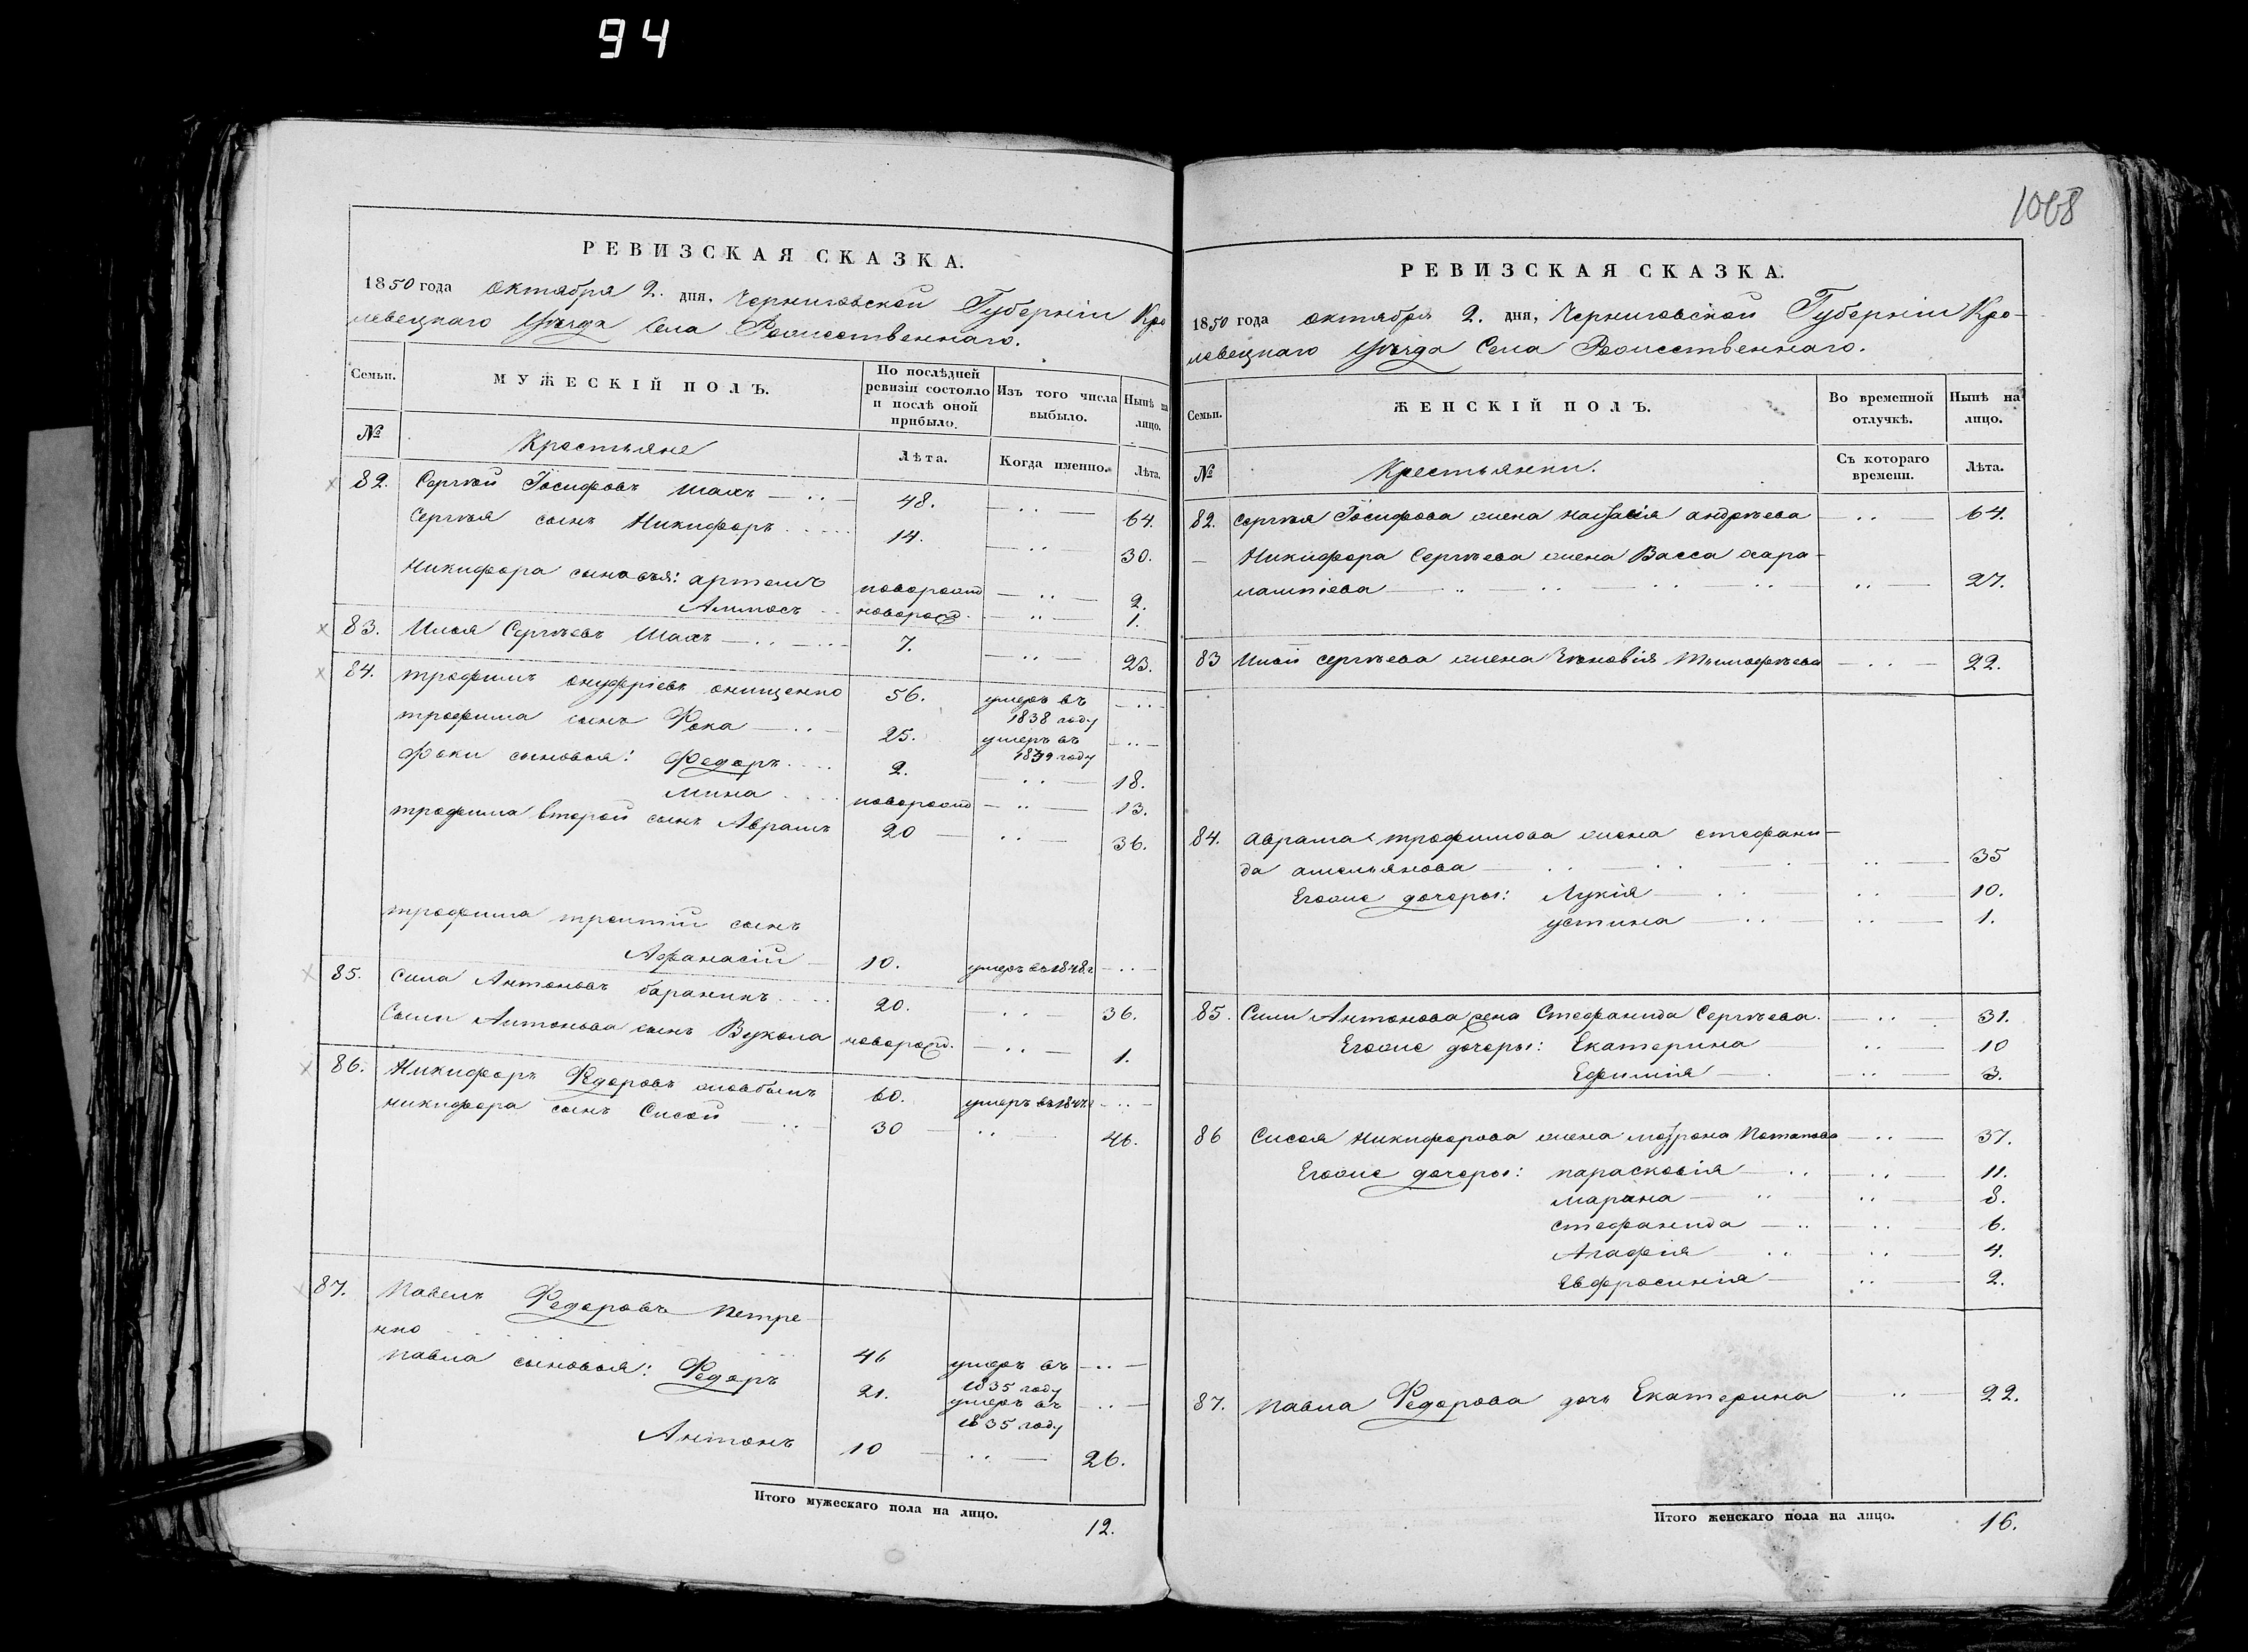 94
1068
РЕВИЗСКАЯ СКАЗКА.
1850 года октября 2. дня, Черниговской Губерніи Кро
левецкаго Уѣзда Села Рожественнаго.
Семьи.
МУЖЕСКІЙ ПОЛЪ.
По послѣдней ревизіи состояло и послѣ оной прибыло.
Изъ того числа выбыло.
Нынѣ на лицо.
№
Крестьяне
Лѣта.
Когда именно.
Лѣта.
82. Сергѣй Іосифовъ Шахъ — .. — 48. — .. — 64.
Сергѣя сынъ Никифоръ .... 14. — .. — 30.
Никифора сыновья: артемъ новорожд — .. — 2.
Аммосъ .. новорожд. — .. — 1.
83. Илья Сергѣевъ Шахъ — .. — 7. — .. — 23.
84. трофимъ онуфріевъ онищенко 56. умеръ въ 1838 году — .. —
трофима сынъ Фока — .. — 25. умеръ въ 1839 году — .. —
Фоки сыновья: Федоръ .... 2. — .. — 18.
Мина .... новорожд — .. — 13.
трофима второй сынъ Аврамъ 20 — .. — 36.
трофима третій сынъ
Афанасій — 10. умеръ въ 1848 г — .. —
85. Сила Антоновъ бараникъ .... 20. — .. — 36.
Силы Антонова сынъ Вукола новорожд. — .. — 1.
86. Никифоръ Федоровъ 60. умеръ въ 1847 г — .. —
никифора сынъ Сисой — .. — 30 — .. — 46.
87. Павелъ Федоровъ Петре—
нко 46 умеръ въ 1835 году — .. —
Павла сыновья: Федоръ 21. умеръ въ 1835 году — .. —
Антонъ 10 — .. — 26.
Итого мужескаго пола на лицо.
12.
РЕВИЗСКАЯ СКАЗКА.
1850 года октября 2. дня, Черниговской Губерніи Кро-
левецкаго Уѣзда Села Рожественнаго.
Семьи.
ЖЕНСКІЙ ПОЛЪ.
Во временной отлучкѣ.
Нынѣ на лицо.
№
Крестьянки.
Съ котораго времени.
Лѣта.
82. Сергѣя Іосифова жена андрѣева .. — 64.
— Никифора Сергѣева жена Васса хара—
лампіева — .. — 27.
83 Ильи сергѣева жена Зѣновія Тымофѣева — .. — 22.
84. Аврама трофимова жена стефани—
да амельянова — .. — 35
Егоже дочеры: Лукія — .. — 10.
устина — .. — 1.
85. Силы Антонова жена Стефанида Сергѣева. — .. — 31.
Егоже дочеры: Екатерина — .. — 10
Ефимія — .. — 3.
86 Сисоя Никифорова жена мотрона Потапова — .. — 37.
Егоже дочеры: парасковія — .. — 11.
марина — .. — 8.
стефанида — .. — 6.
Агафія .. — 4.
Евфросинія — .. — 2.
87. Павла Федорова дочь Екатерина — .. — 22.
Итого женскаго пола на лицо.
16.